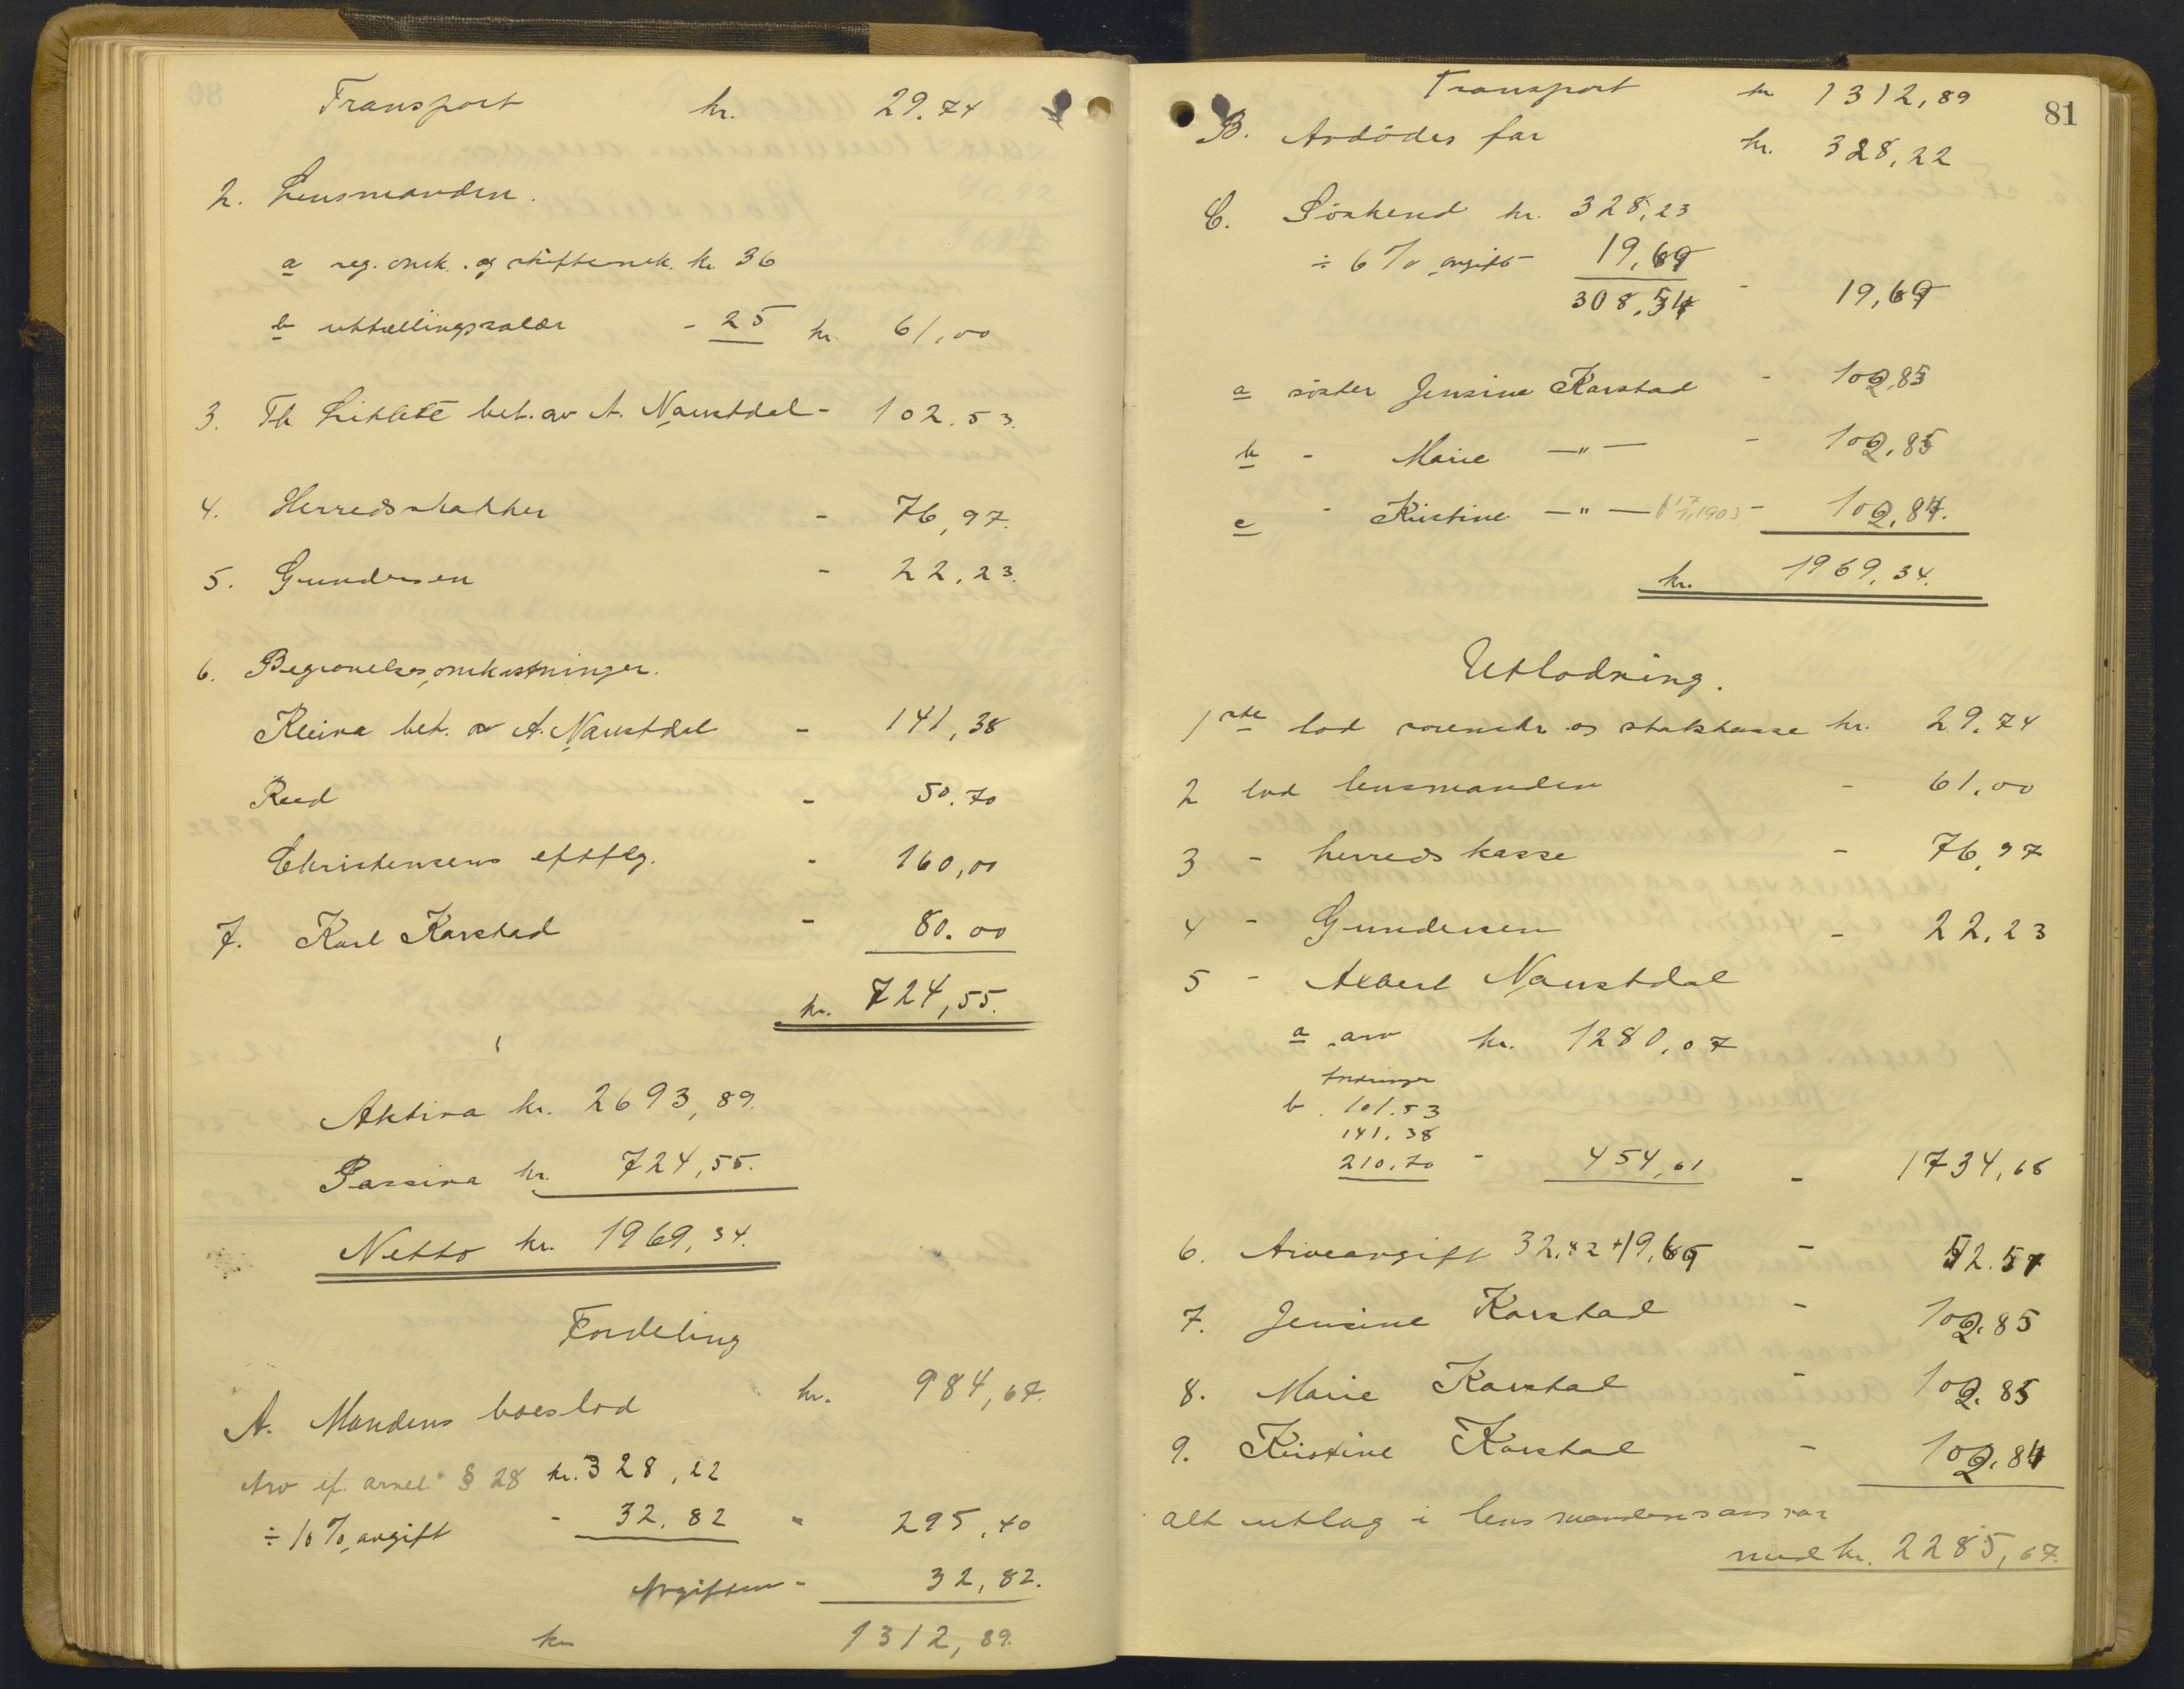 Transport kr. 29.74
2. Lensmanden.
a reg. omk. og skifteomk. kr. 36
b uttællingssalær - 25 kr. 61,00
3. Th. bet. av A. Naustdal - 102.53.
4. Herredsskatter - 76,97.
5. Gundersen - 22,23.
6. Begravelsesomkostninger.
Kleiva bet. av A. Naustdal - 141,38
Reed - 50.70
Christensens eftflg. - 160,00
7. Karl Karstad - 80.00
kr. 724,55.
Aktiva kr. 2693,89.
Passiva kr. 724,55.
Netto kr. 1969,34.
Fordeling
A. Mandens boeslod kr. 984,67.
Arv ef. arvel. § 28 kr. 328,22
÷ 10 % avgift - 32,82 - 295,40
Avgiften - 32,82.
kr 1312,89.
81
Transport kr 1312,89
B. Avdödes far kr. 328,22
C. Söskend kr. 328,23
÷ 6 % avgift 19,69
308,54 - 19,69
a söster Jensine Karstad - 102,85
b - Marie —"— - 102,85
c - Kristine —"— 1903 - 102,84.
kr. 1969,34.
Utlodning.
1ste lod sorenskr. og statskasse kr. 29.74
2 lod lensmanden - 61.00
3 - herredskasse - 76,97
4 - Gundersen - 22,23
5 - Albert Naustdal
a arv kr. 1280,07
fordringer
b. 101.53
141.38
210.70 - 454,61 - 1734,68
6. Arveavgift 32.82 + 19,69 - 52.51
7. Jensine Karstad - 102.85
8. Marie Karstad - 102.85
9. Kristine Karstad - 102.84
alt utlag i lensmandens ansvar
med kr. 2285,67.